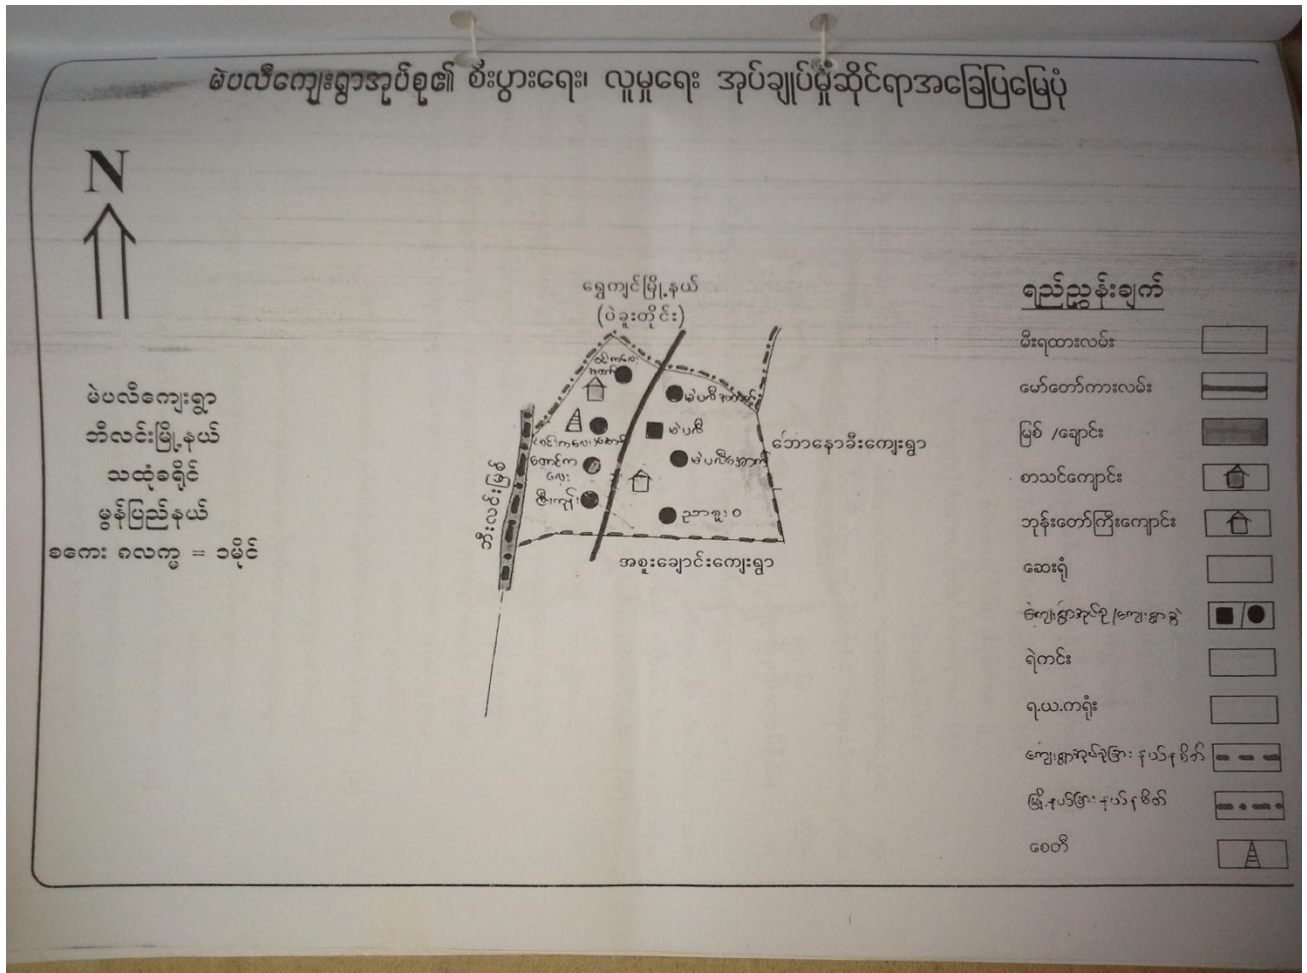 မဲပလီကျေးရွာအုပ်စု၏ စီးပွားရေး၊ လူမှုရေး အုပ်ချုပ်မှုဆိုင်ရာအခြေပြမြေပုံ
N
မဲပလီကျေးရွာ
ဘီလင်းမြို့နယ်
သထုံခရိုင်
မွန်ပြည်နယ်
စကေး ၈လက္မ = ၁မိုင်
ရွှေကျင်မြို့နယ်
(ပဲခူးတိုင်း)
မဲပလီ
မဲပလီအောက်
ဘောနောခီးကျေးရွာ
ဘီးလင်းမြစ်
အစူးချောင်းကျေးရွာ
ရည်ညွှန်းချက်
မီးရထားလမ်း
မော်တော်ကားလမ်း
မြစ် /ချောင်း
စာသင်ကျောင်း
ဘုန်းတော်ကြီးကျောင်း
ဆေးရုံ
ကျေးရွာအုပ်စု/ကျေးရွာခွဲ
ရဲကင်း
ရ.ယ.ကရုံး
ကျေးရွာအုပ်စုခြား နယ်နမိတ်
မြို့နယ်ခြား နယ်နမိတ်
စေတီ